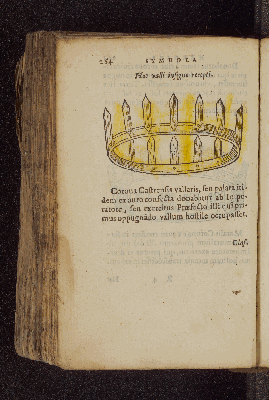 264 SYMBOLA
Hoc valli insigne recepti.
Corona Castrensis vallaris, seu palata iti-
dem ex auro confecta donabatur ab Im pe-
ratore, seu exercitus Præfecto illi qui pri-
mus oppugnãdo vallum hostile occupasset.
Claſ-